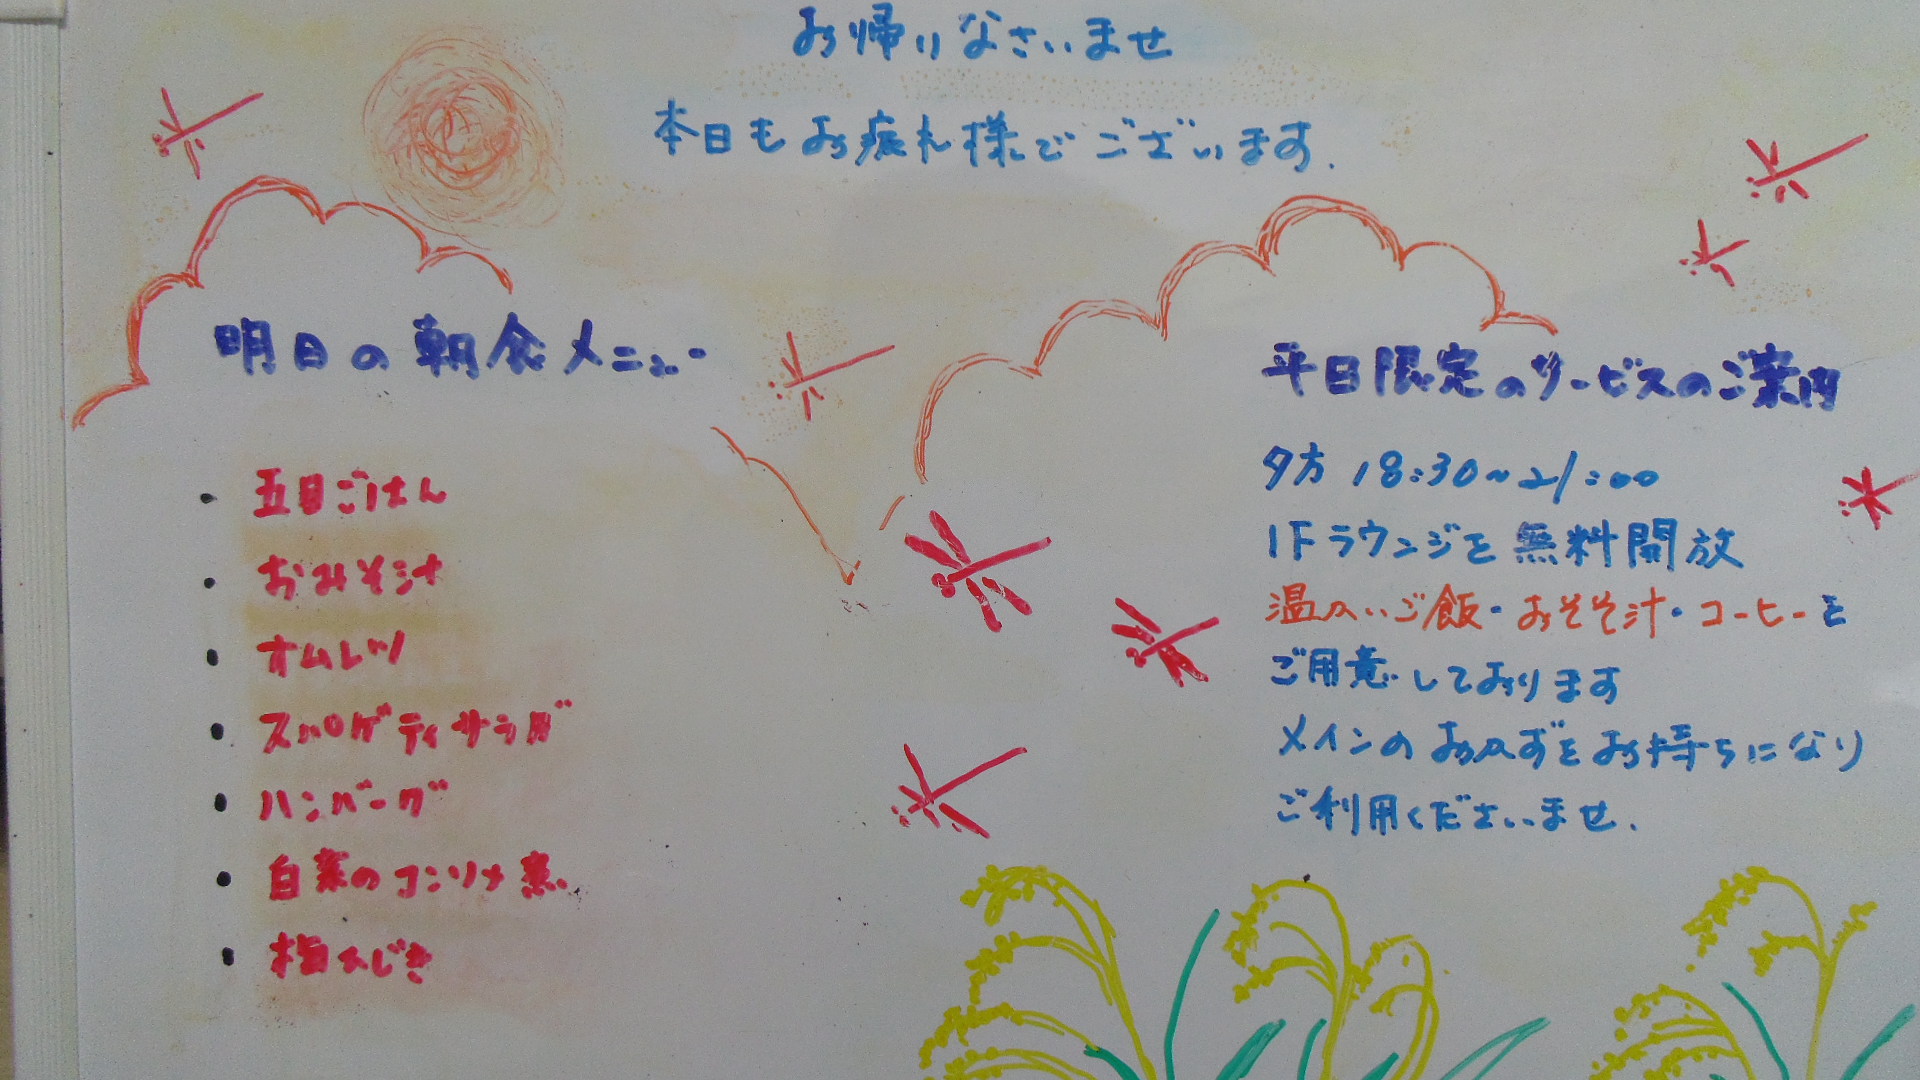 お帰りなさいませ
本日もお疲れ様でございます.
明日の朝食メニュー
・五目ごはん
・おみそ汁
・オムレツ
・スパゲティサラダ
・ハンバーグ
・白菜のコンソメ煮
・梅ひじき
平日限定のサービスのご案内
夕方 18:30~21:00
1Fラウンジを無料開放
温かいご飯・おそそ汁・コーヒーを
ご用意しております
メインのおかずをお持ちになり
ご利用くださいませ.